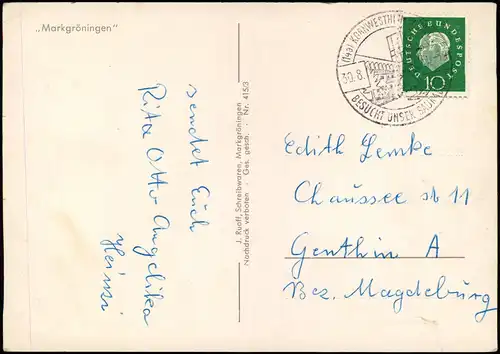 „Markgröningen"
sendet Euch
Rita Otto Angelika
Heinzi
J. Ruoff, Schreibwaren, Markgröningen
Nachdruck verboten · Ges. gesch. · Nr. 415/3
(14a) KORNWESTHEIM
30.8.
BESUCHT UNSER
DEUTSCHE BUNDESPOST
10
Edith Lemke
Chaussee str 11
Genthin A
Bez. Magdeburg